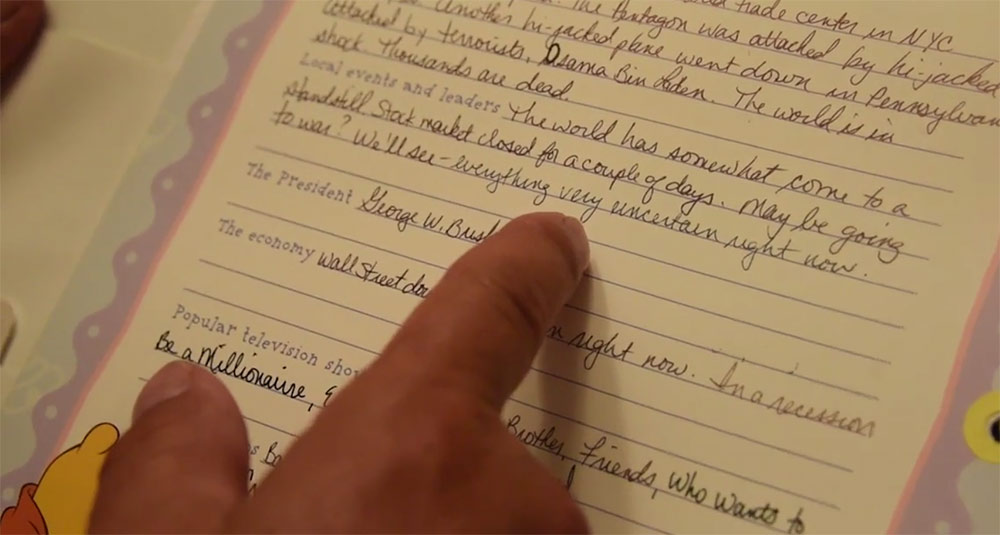 trade center in NYC
. The Pentagon was attacked by hi-jacked
Another hi-jacked plane went down in Pennsylvan
attacked by terrorists, Osama Bin Laden. The world is in
shock. Thousands are dead.
Local events and leaders The world has somewhat come to a
standstill. Stock market closed for a couple of days. May be going
to war? We'll see - everything very uncertain right now.
The President George W. Bush
The economy Wall Street do n right now. In a recession
Popular television sho Brother, Friends, Who Wants to
Be a Millionaire, E